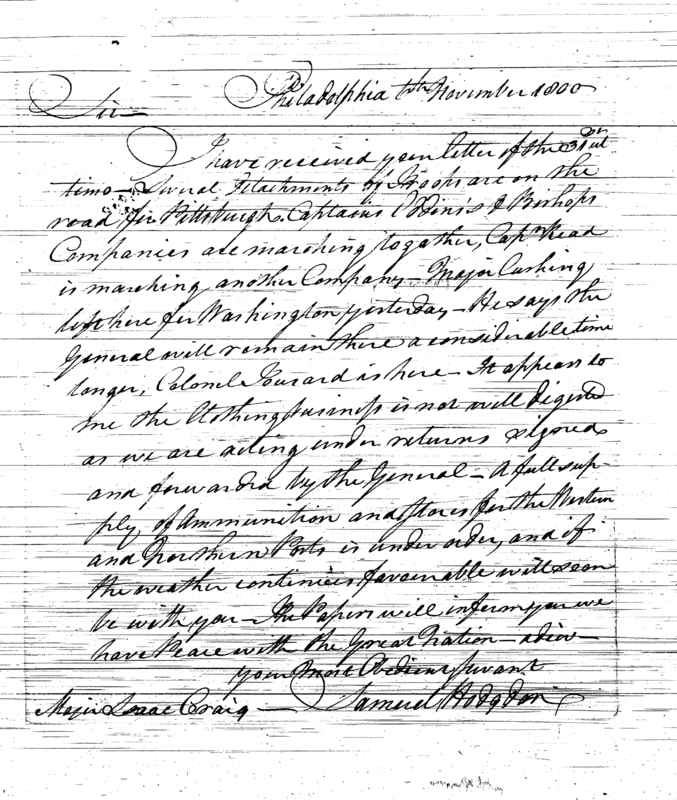 Philadelphia November 1800
Sir
I have received your letter of the 31st ul
timo — Several Detachments of Troops are on the
road for Pittsburgh. Captains & Bishops
Companies are marching together, Capn Read
is marching another Company — Major Cushing
left here for Washington yesterday — He says the
General will remain there a considerable time
longer, Colonel is here — It appears to
me the Clothing business is not well digested
as we are acting under returns signed
and forwarded by the General — A full sup-
ply of Ammunition and Stores for the Western
and Northern Posts is under order, and if
the weather continues favourable will soon
be with you — The Papers will inform you we
have Peace with the Great Nation — adieu —
your most Obedient Servant
Major Isaac Craig — Samuel Hodgdon